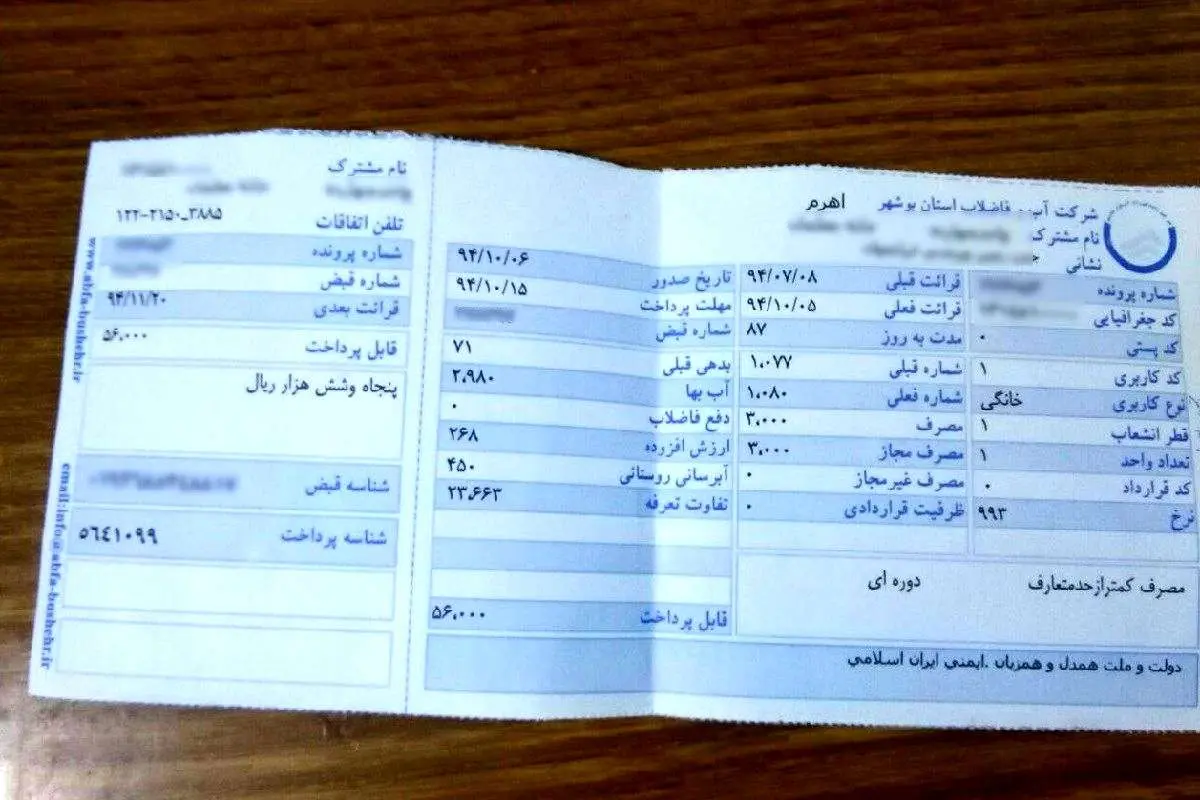 شرکت آب و فاضلاب استان بوشهر اهرم
نام مشترک
نشانی
شماره پرونده
کد جغرافیایی
کد پستی ۰
کد کاربری ۱
نوع کاربری خانگی
قطر انشعاب ۱
تعداد واحد ۱
کد قرارداد ۰
نرخ ۹۹۳
قرائت قبلی ۹۴/۰۷/۰۸
قرائت فعلی ۹۴/۱۰/۰۵
مدت به روز ۸۷
شماره قبلی ۱،۰۷۷
شماره فعلی ۱،۰۸۰
مصرف ۳،۰۰۰
مصرف مجاز ۳،۰۰۰
مصرف غیرمجاز ۰
ظرفیت قراردادی ۰
۹۴/۱۰/۰۶
تاریخ صدور ۹۴/۱۰/۱۵
مهلت پرداخت
شماره قبض
بدهی قبلی ۷۱
آب بها ۲،۹۸۰
دفع فاضلاب ۰
ارزش افزرده ۲۶۸
آبرسانی روستائی ۴۵۰
تفاوت تعرفه ۲۳،۶۶۳
قابل پرداخت ۵۶،۰۰۰
مصرف کمترازحدمتعارف دوره ای
دولت و ملت همدل و همزبان .ایمنی ایران اسلامی
نام مشترک
تلفن اتفاقات ۱۲۲-۲۱۵۰_۳۸۸۵
شماره پرونده
شماره قبض
قرائت بعدی ۹۴/۱۱/۲۰
قابل پرداخت ۵۶،۰۰۰
پنجاه وشش هزار ریال
شناسه قبض
شناسه پرداخت ۵۶۴۱۰۹۹
www.abfa-bushehr.ir
email:info@abfa-bushehr.ir